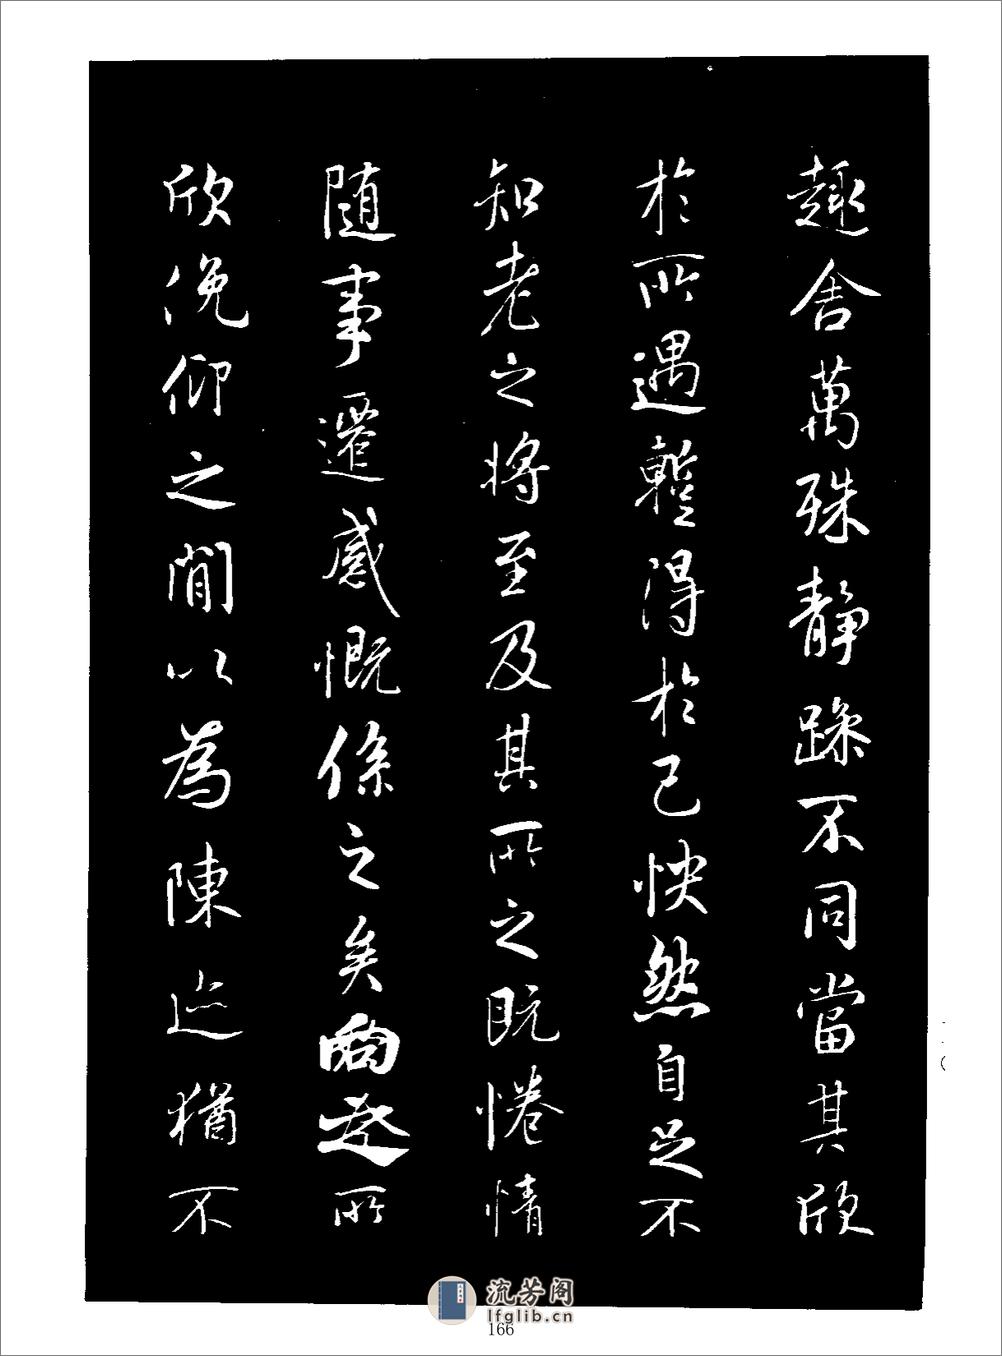 趣舍萬殊静躁不同當其欣
於所遇蹔得於己怏然自足不
知老之將至及其所之既惓情
随事遷感慨係之矣向之所
欣俛仰之閒以為陳迹猶不
流芳阁
lfglib.cn
166